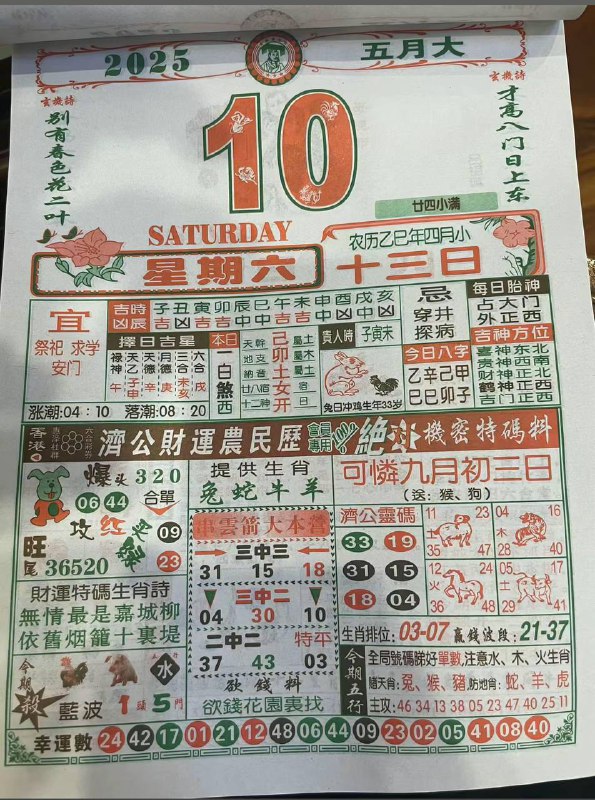 2025
五月大
玄機詩
别有春色花二叶
玄機詩
才高八门日上东
10
廿四小满
SATURDAY
农历乙巳年四月小
星期六
十三日
宜
祭祀 求学
安门
吉時 子丑寅卯辰巳午未申酉戌亥
凶辰
擇日吉星
本日
一白煞西
己卯土女开
貴人時 子寅未
兔日冲鸡生年33岁
忌
穿井
探病
今日八字
乙辛己甲
巳巳卯子
每日胎神
占大门
外正西
吉神方位
喜神东北
福神正南
财神正北
鹤神正西
吉门正西
涨潮:04:10 落潮:08:20
香港
濟公財運農民歷
會員專用
絕密
機密特碼料
爆头 320
06 44 合單
攻红兰绿
09
23
旺尾 36520
財運特碼生肖詩
無情最是嘉城柳
依舊烟籠十裏堤
今期殺
水
藍波 1頭 5門
提供生肖
兔蛇牛羊
串雲箭大本營
三中三
31 15 18
三中二
04 30 10
二中二 特平
37 43 03
欲錢料
欲錢花園裏找
可憐九月初三日
(送:猴、狗)
濟公靈碼
33 19
31 15
18 04
11 23
土
35 47
04 16
木
28 40
12 24
火
36 48
05 17
土
29 41
生肖排位:03-07 贏錢波段:21-37
今期五行
全局號碼睇好單數,注意水、木、火生肖
隨天肖:兔、猴、豬,防地肖:蛇、羊、虎
主攻:46 34 13 38 05 23 47 40 25 11
幸運數 24 42 17 01 21 12 48 06 44 09 23 02 05 41 08 40